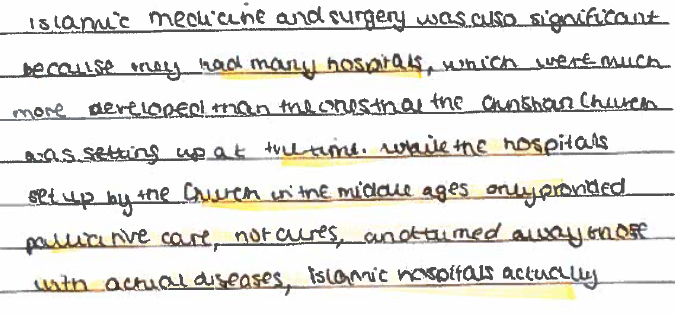 Islamic medicine and surgery was also significant
because they had many hospitals, which were much
more developed than the ones that the Christian Church
was setting up at the time. While the hospitals
set up by the Church in the middle ages only provided
palliative care, not cures, and turned away those
with actual diseases, Islamic hospitals actually